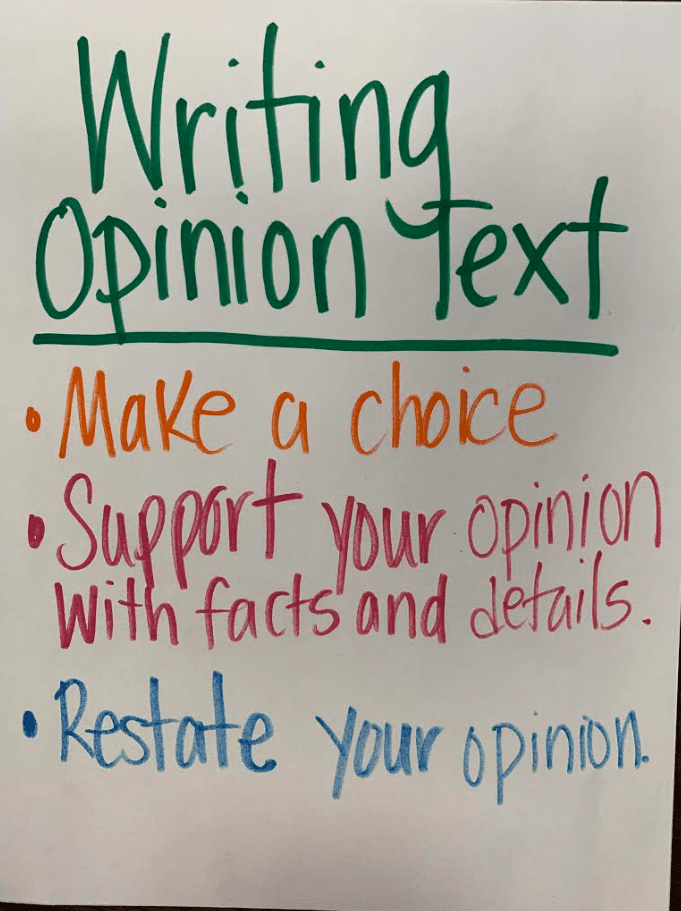 Writing
Opinion Text
• Make a choice
• Support your opinion
with facts and details.
• Restate your opinion.